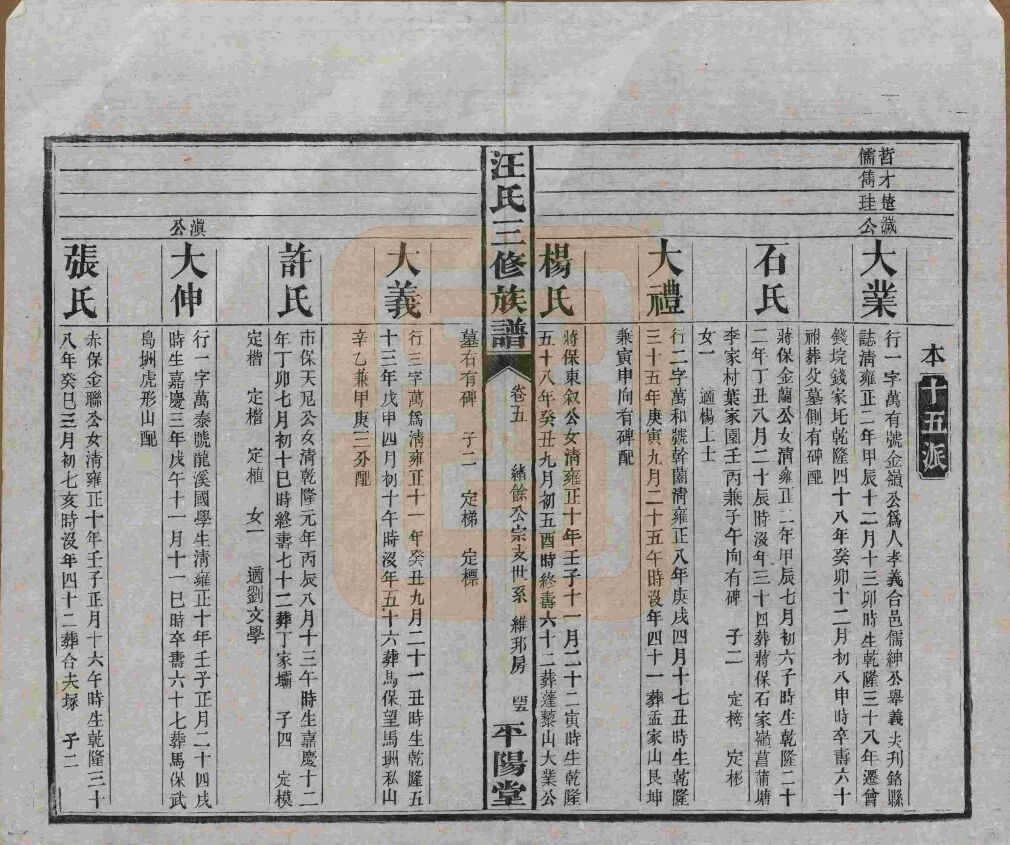 哲才楚濊
儒儁珪公
本十五派
大業
行一字萬有號金嶺公爲人孝義合邑儒紳公舉義夫列銘縣
誌淸雍正二年甲辰十二月十三卯時生乾隆三十八年遷曾
錢埦錢家圫乾隆四十八年癸卯十二月初八申時卒壽六十
祔葬父墓側有碑配
石氏
蔣保金蘭公女淸雍正二年甲辰七月初六子時生乾隆二十
二年丁丑八月二十辰時沒年三十四葬蔣保石家嶺菖蒲塘
李家村葉家園壬丙兼子午向有碑 子二 定榨 定彬
女一 適楊上士
大禮
行二字萬和號幹園淸雍正八年庚戌四月十七丑時生乾隆
三十五年庚寅九月二十五午時沒年四十一葬孟家山艮坤
兼寅申向有碑配
楊氏
蔣保東叙公女淸雍正十年壬子十一月二十二寅時生乾隆
五十八年癸丑九月初五酉時終壽六十二葬蓬藜山大業公
汪氏三修族譜
卷五 緒餘公宗支世系 維邦房 平陽堂
墓右有碑 子二 定梯 定標
大義
行三字萬爲淸雍正十一年癸丑九月二十一丑時生乾隆五
十三年戊申四月初十午時沒年五十六葬馬保望馬洲私山
辛乙兼甲庚三分配
許氏
市保天尼公女淸乾隆元年丙辰八月十三午時生嘉慶十二
年丁卯七月初十巳時終壽七十二葬丁家壩 子四 定模
定楷 定楷 定植 女一 適劉文學
滇公
大伸
行一字萬泰號龍溪國學生淸雍正十年壬子正月二十四戌
時生嘉慶三年戊午十一月十一巳時卒壽六十七葬馬保武
島洲虎形山配
張氏
赤保金聯公女淸雍正十年壬子正月十六午時生乾隆三十
八年癸巳三月初七亥時沒年四十二葬合夫塚 子二